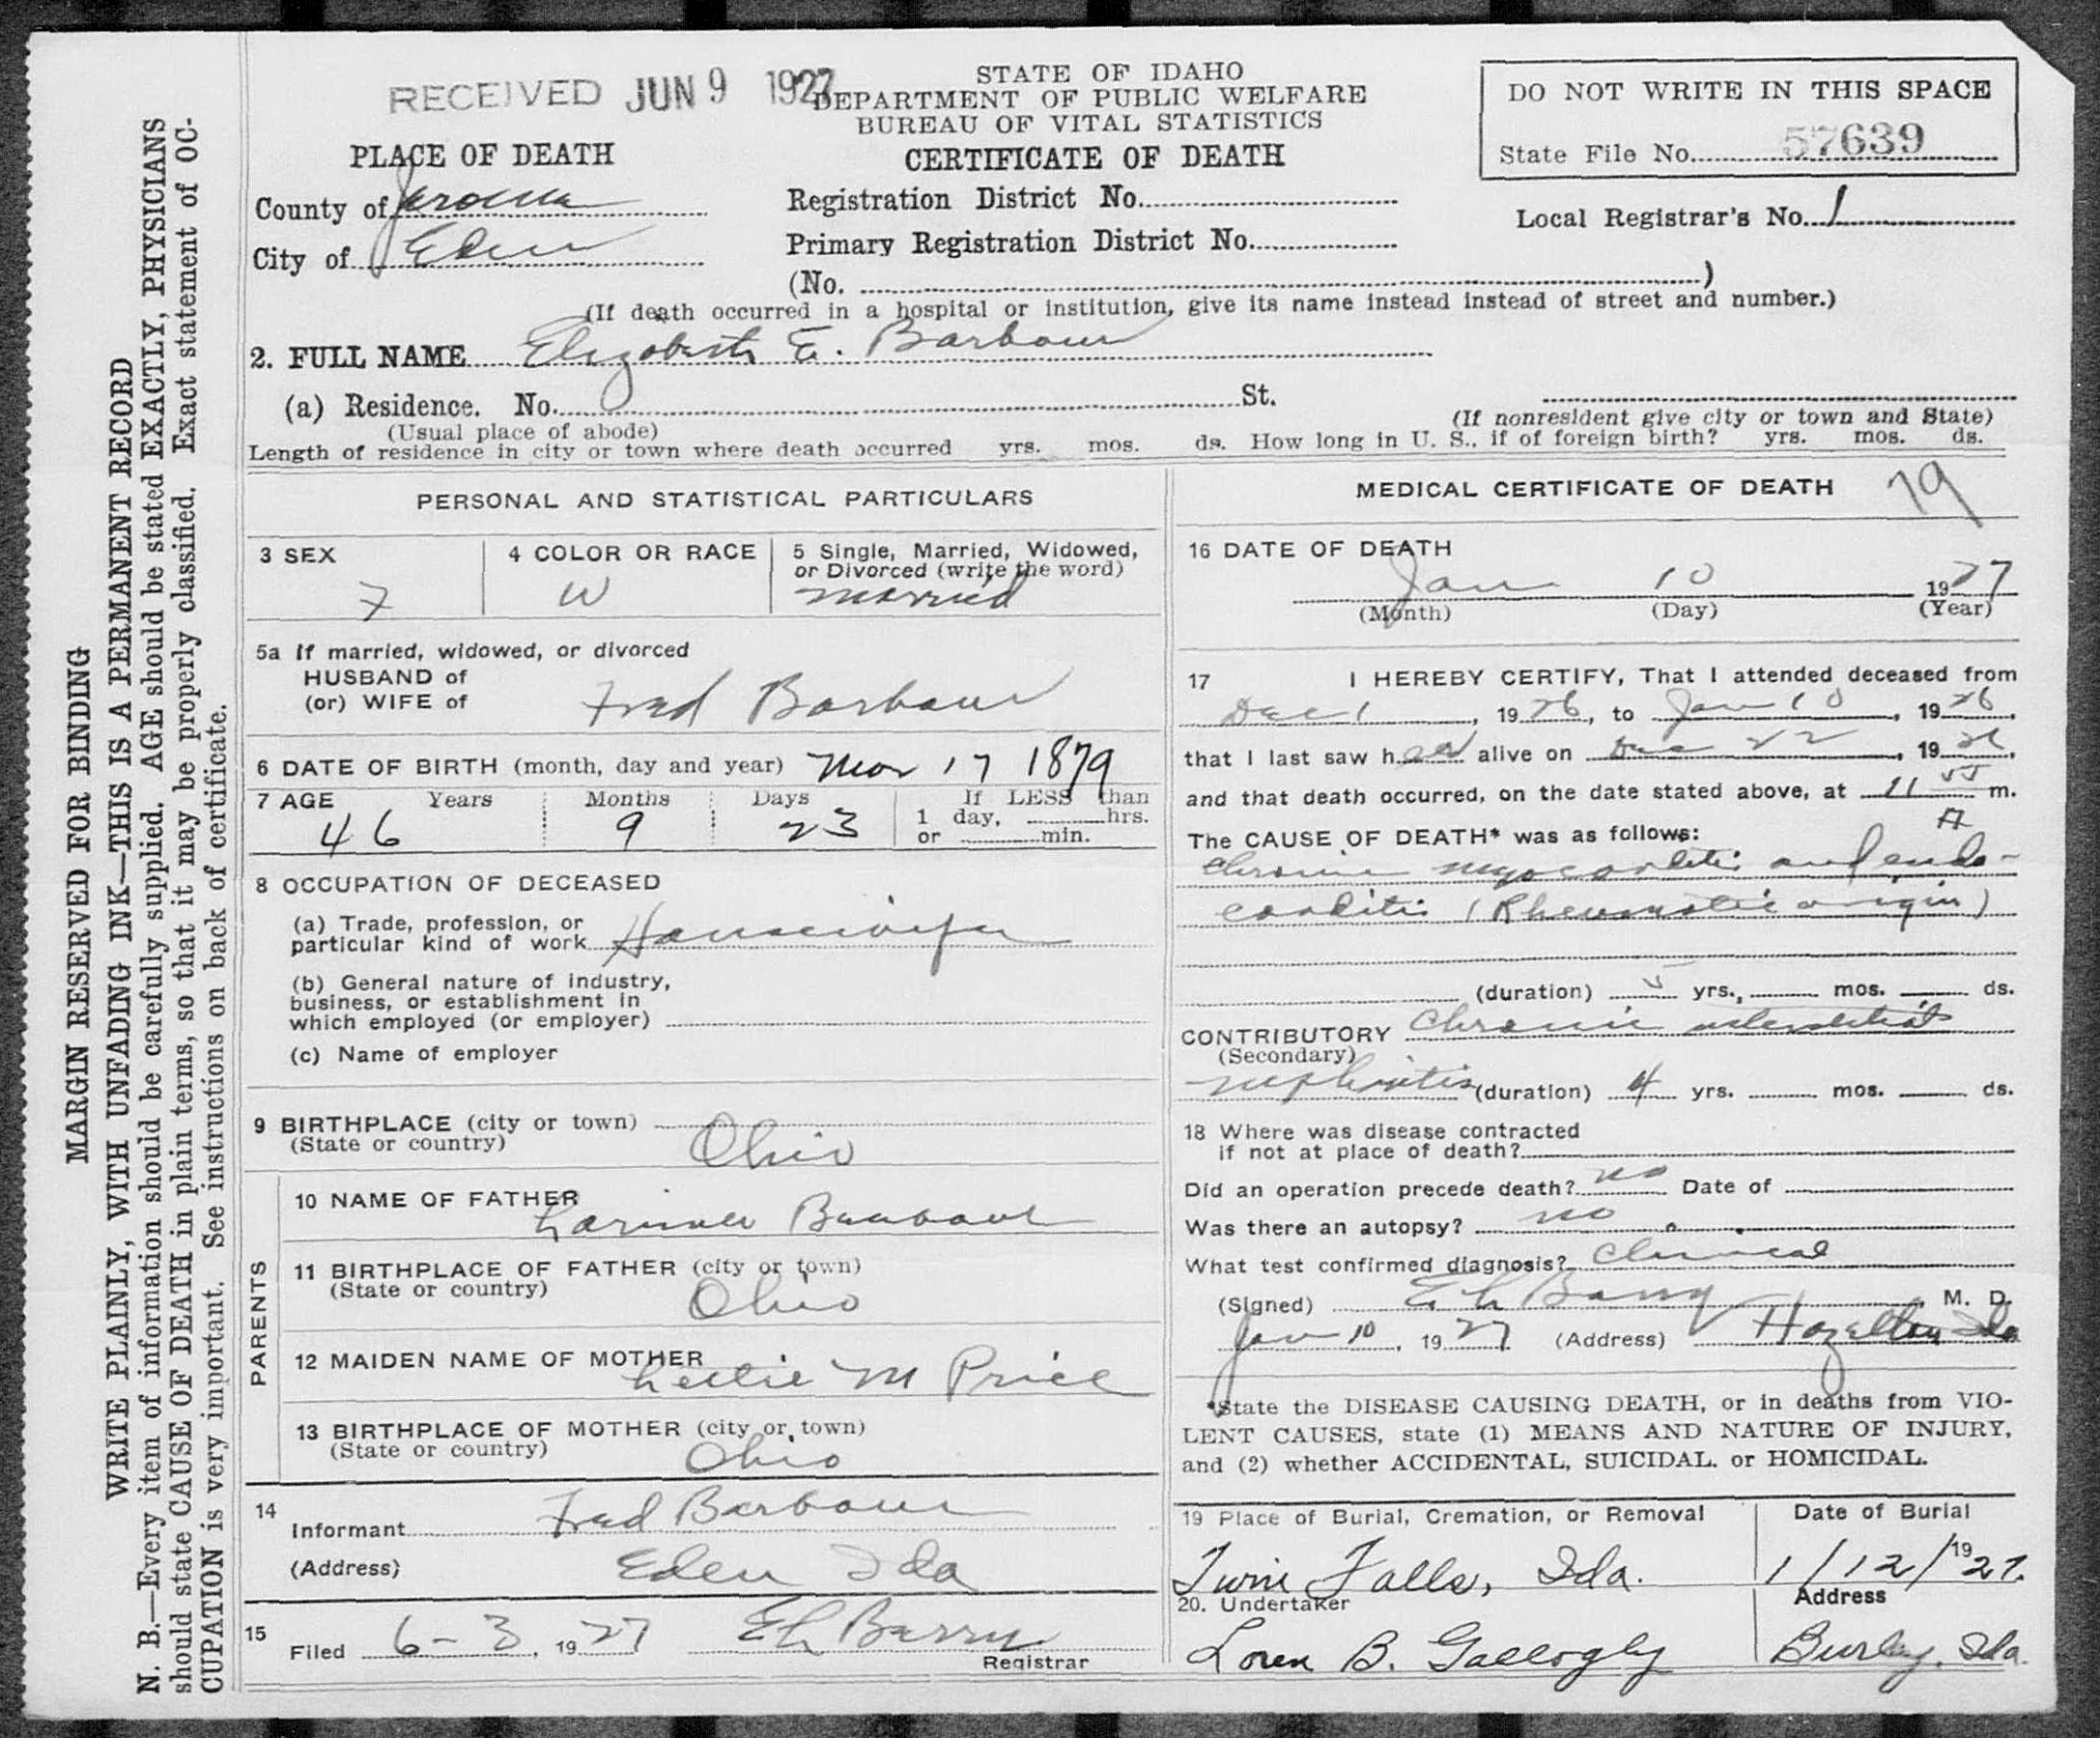 RECEIVED JUN 9 1927
STATE OF IDAHO
DEPARTMENT OF PUBLIC WELFARE
BUREAU OF VITAL STATISTICS
CERTIFICATE OF DEATH
DO NOT WRITE IN THIS SPACE
State File No. 57639
PLACE OF DEATH
County of Jerome
City of Eden
Registration District No.
Primary Registration District No.
(No. )
Local Registrar's No. 1
(If death occurred in a hospital or institution, give its name instead instead of street and number.)
2. FULL NAME Elizabeth E. Barbour
(a) Residence. No. St.
(Usual place of abode)
(If nonresident give city or town and State)
Length of residence in city or town where death occurred yrs. mos. ds. How long in U. S., if of foreign birth? yrs. mos. ds.
PERSONAL AND STATISTICAL PARTICULARS
3 SEX
F
4 COLOR OR RACE
W
5 Single, Married, Widowed,
or Divorced (write the word)
married
5a If married, widowed, or divorced
HUSBAND of
(or) WIFE of
Fred Barbour
6 DATE OF BIRTH (month, day and year) Mar 17 1879
7 AGE Years Months Days If LESS than
1 day, hrs.
or min.
46 9 23
8 OCCUPATION OF DECEASED
(a) Trade, profession, or
particular kind of work Housewife
(b) General nature of industry,
business, or establishment in
which employed (or employer)
(c) Name of employer
9 BIRTHPLACE (city or town)
(State or country) Ohio
PARENTS
10 NAME OF FATHER
Barbour
11 BIRTHPLACE OF FATHER (city or town)
(State or country) Ohio
12 MAIDEN NAME OF MOTHER
M Price
13 BIRTHPLACE OF MOTHER (city or town)
(State or country) Ohio
14
Informant Fred Barbour
(Address) Eden Ida
15
Filed 6-3, 1927 Eh Barry
Registrar
MEDICAL CERTIFICATE OF DEATH
79
16 DATE OF DEATH
Jan 10 1927
(Month) (Day) (Year)
17 I HEREBY CERTIFY, That I attended deceased from
Dec 1, 1926, to Jan 10, 1926,
that I last saw her alive on Dec 22, 1926,
and that death occurred, on the date stated above, at 11 55 m.
A
The CAUSE OF DEATH* was as follows:
Chronic myocarditis and endo-
carditis (Rheumatic origin)
(duration) 5 yrs., mos. ds.
CONTRIBUTORY Chronic interstitial
(Secondary)
nephritis (duration) 4 yrs. mos. ds.
18 Where was disease contracted
if not at place of death?
Did an operation precede death? no Date of
Was there an autopsy? no
What test confirmed diagnosis? Clinical
(Signed) Eh Barry M. D.
Jan 10, 1927 (Address) Hazelton Ida
*State the DISEASE CAUSING DEATH, or in deaths from VIO-
LENT CAUSES, state (1) MEANS AND NATURE OF INJURY,
and (2) whether ACCIDENTAL, SUICIDAL. or HOMICIDAL.
19 Place of Burial, Cremation, or Removal
Twin Falls, Ida.
Date of Burial
1/12/1927.
20. Undertaker
Loren B. Gallogly
Address
Burley, Ida.
MARGIN RESERVED FOR BINDING
WRITE PLAINLY, WITH UNFADING INK—THIS IS A PERMANENT RECORD
N. B.—Every item of information should be carefully supplied. AGE should be stated EXACTLY, PHYSICIANS
should state CAUSE OF DEATH in plain terms, so that it may be properly classified. Exact statement of OC-
CUPATION is very important. See instructions on back of certificate.